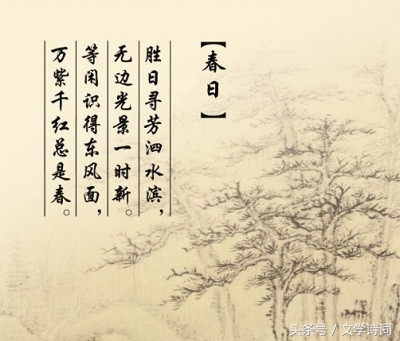 【春日】
胜日寻芳泗水滨，
无边光景一时新。
等闲识得东风面，
万紫千红总是春。
头条号/文学诗词